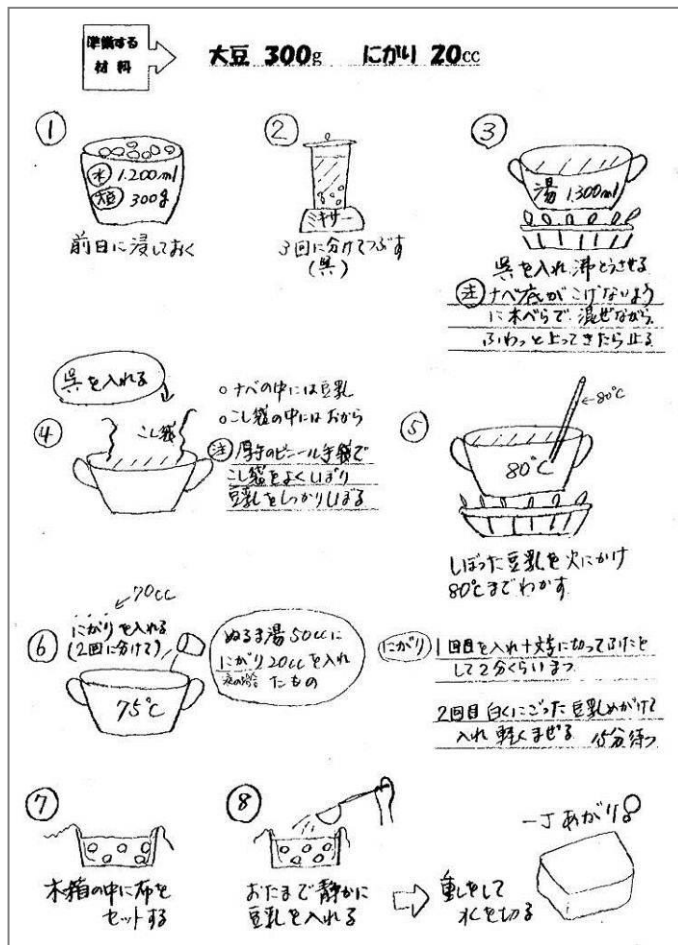 準備する
材料
大豆 300g にがり 20cc
①
水 1.200ml
大豆 300g
前日に浸しておく
②
ミキサー
3回に分けてつぶす
(呉)
③
湯 1.300ml
呉を入れ沸とうさせる
注 ナベ底がこげないよう
に木べらで混ぜながら、
ふわっと上ってきたら止る
④
呉を入れる
こし袋
○ナベの中には豆乳
○こし袋の中にはおから
注 厚手のビニール手袋で
こし袋をよくしぼり
豆乳をしっかりしぼる
⑤
←80℃
80℃
しぼった豆乳を火にかけ
80℃までわかす
⑥
70cc
にがりを入れる
(2回に分けて)
75℃
ぬるま湯50ccに
にがり20ccを入れ
たもの
にがり
1回目を入れ十文字に切ってふたを
して2分くらいまつ
2回目 白くにごった豆乳めがけて
入れ 軽くまぜる 15分待つ
⑦
木箱の中に布を
セットする
⑧
おたまで静かに
豆乳を入れる
重しをして
水を切る
一丁あがり